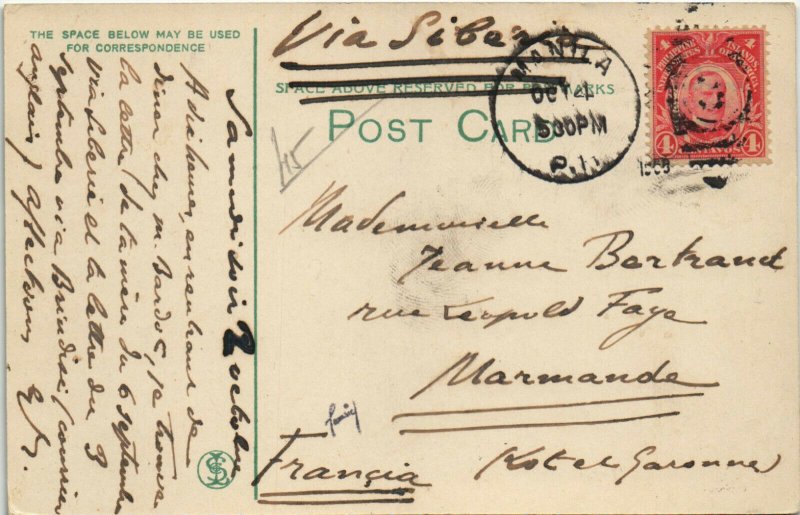 THE SPACE BELOW MAY BE USED
FOR CORRESPONDENCE
Via Siber
SPACE ABOVE RESERVED FOR POSTMARKS
POST CARD
MANILA
OCT 4
500PM
P.I.
1909
PHILIPPINE ISLANDS
UNITED STATES OF AMERICA
4 4
4 4
45
Mademoiselle
Jeanne Bertrand
rue Léopold Faye
Marmande
Francia
(Lot et Garonne)
Samedi soir 2 octobre
A dix heures, en rentrant de
diner chez M. Bardos, je trouve
la lettre de la mère du 6 septembre
via Siberie et la lettre du 3
septembre via Brindisi (courrier
anglais) affections